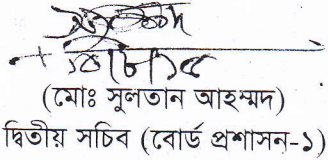 (মোঃ সুলতান আহম্মদ)
দ্বিতীয় সচিব (বোর্ড প্রশাসন-১)